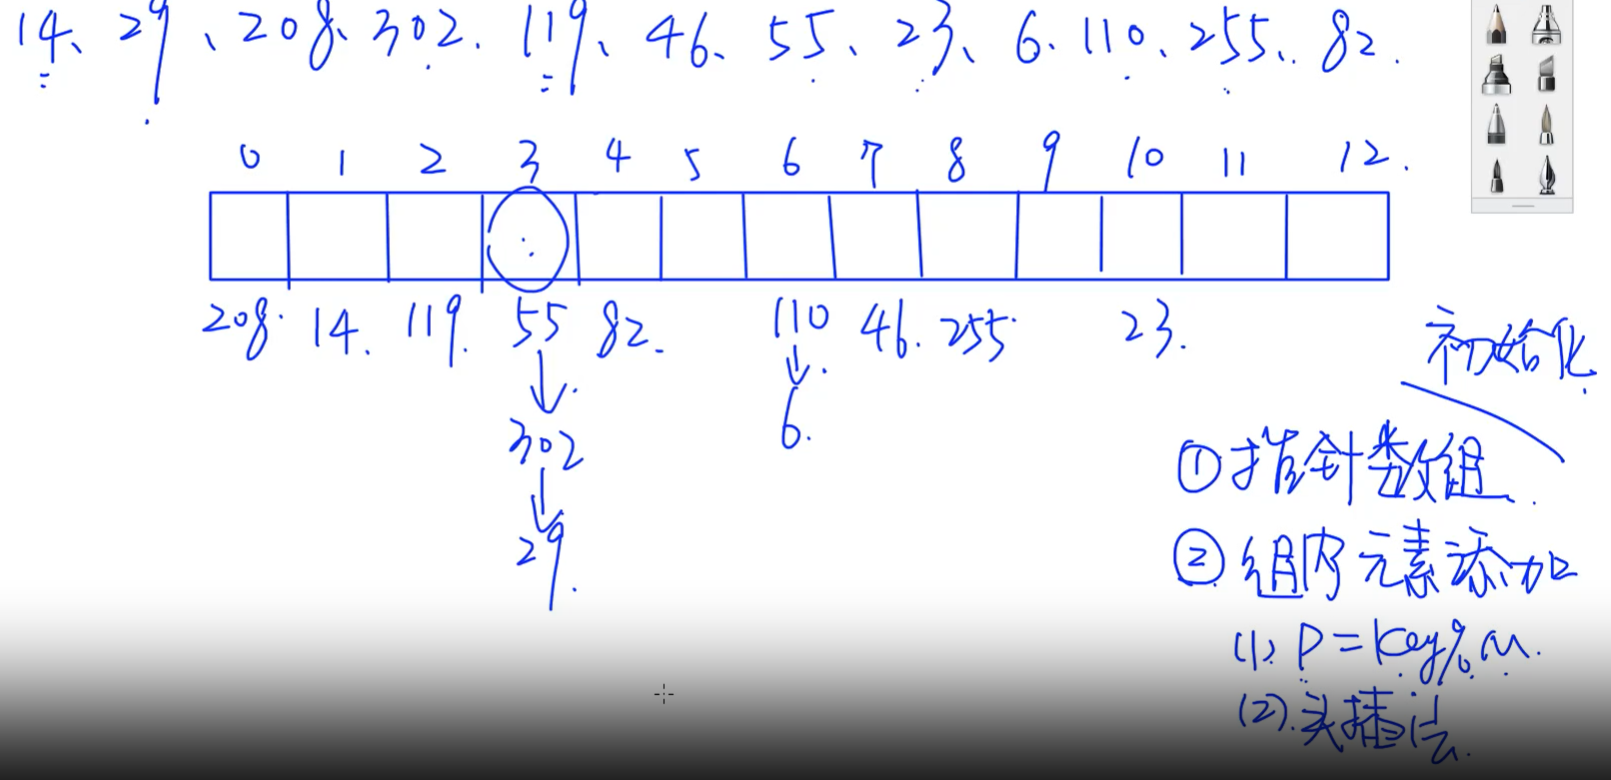 14、29、208、302、119、46、55、23、6、110、255、82.
0 1 2 3 4 5 6 7 8 9 10 11 12.
208. 14. 119. 55 82. 110 46. 255 23.
初始化
302 6.
①指针数组.
29.
②组内元素添加
(1). P=key%m.
(2).头插法.